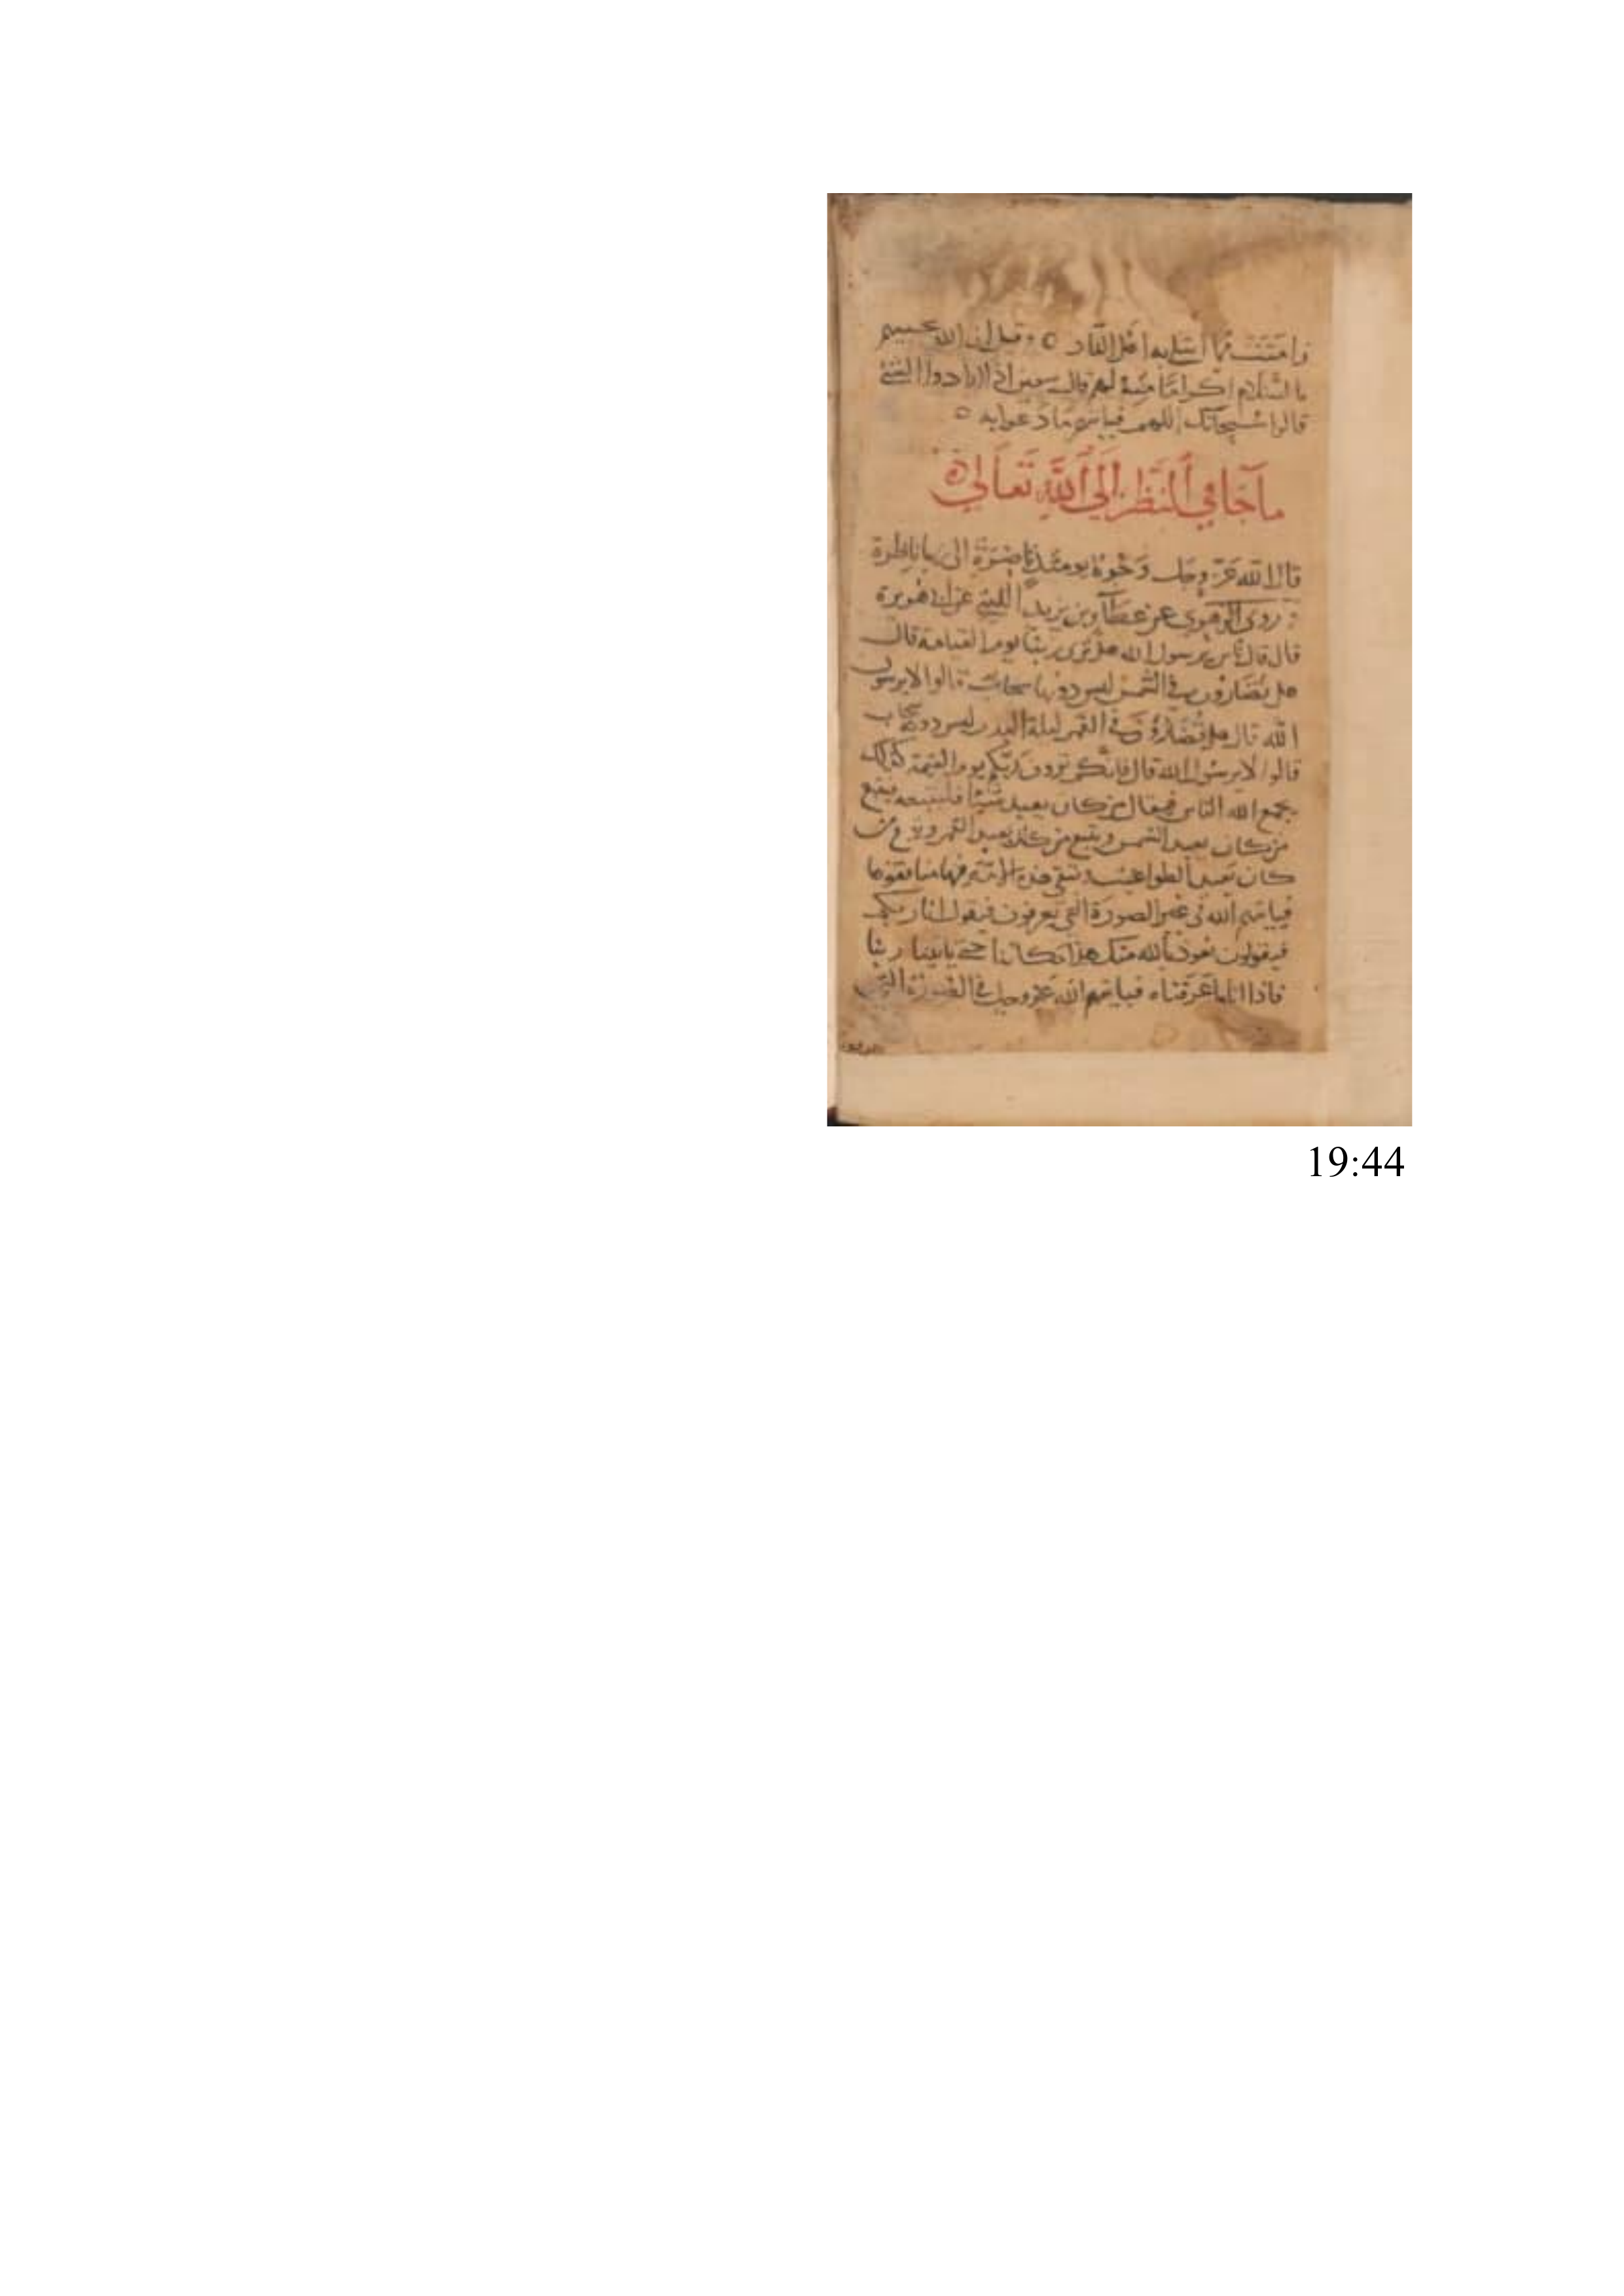 وامتننت مما ابتلي به اهل النار ه وقيل ان الله يحييهم
بالسلام اكراما منه لهم قال سفين اذا ارادوا الشئ
قالوا سبحانك اللهم فياتيهم ما دعوا به ه
ماجا في النظر الي الله تعالي ه
قال الله عز وجل وجوه يومئذ ناضرة الى ربها ناظرة
روى الزهري عن عطاء بن يزيد الليثي عن ابي هريرة
قال قال ناس يرسول الله هل نرى ربنا يوم القيامة قال
هل تضارون في الشمس ليس دونها سحاب قالوا لا يرسول
الله قال هل تضارون في القمر ليلة البدر ليس دونه سحاب
قالوا لا يرسول الله قال فانكم ترون ربكم يوم القيمة كذلك
يجمع الله الناس فيقال من كان يعبد شيئا فليتبعه فيتبع
من كان يعبد الشمس ويتبع من كان يعبد القمر ويتبع من
كان يعبد الطواغيت وتبقى هذه الامة فيها منافقوها
فياتيهم الله في غير الصورة التي يعرفون فيقول انا ربكم
فيقولون نعوذ بالله منك هذا مكاننا حتى ياتينا ربنا
فاذا اتانا عرفناه فياتيهم الله عز وجل في الصورة التي
19:44